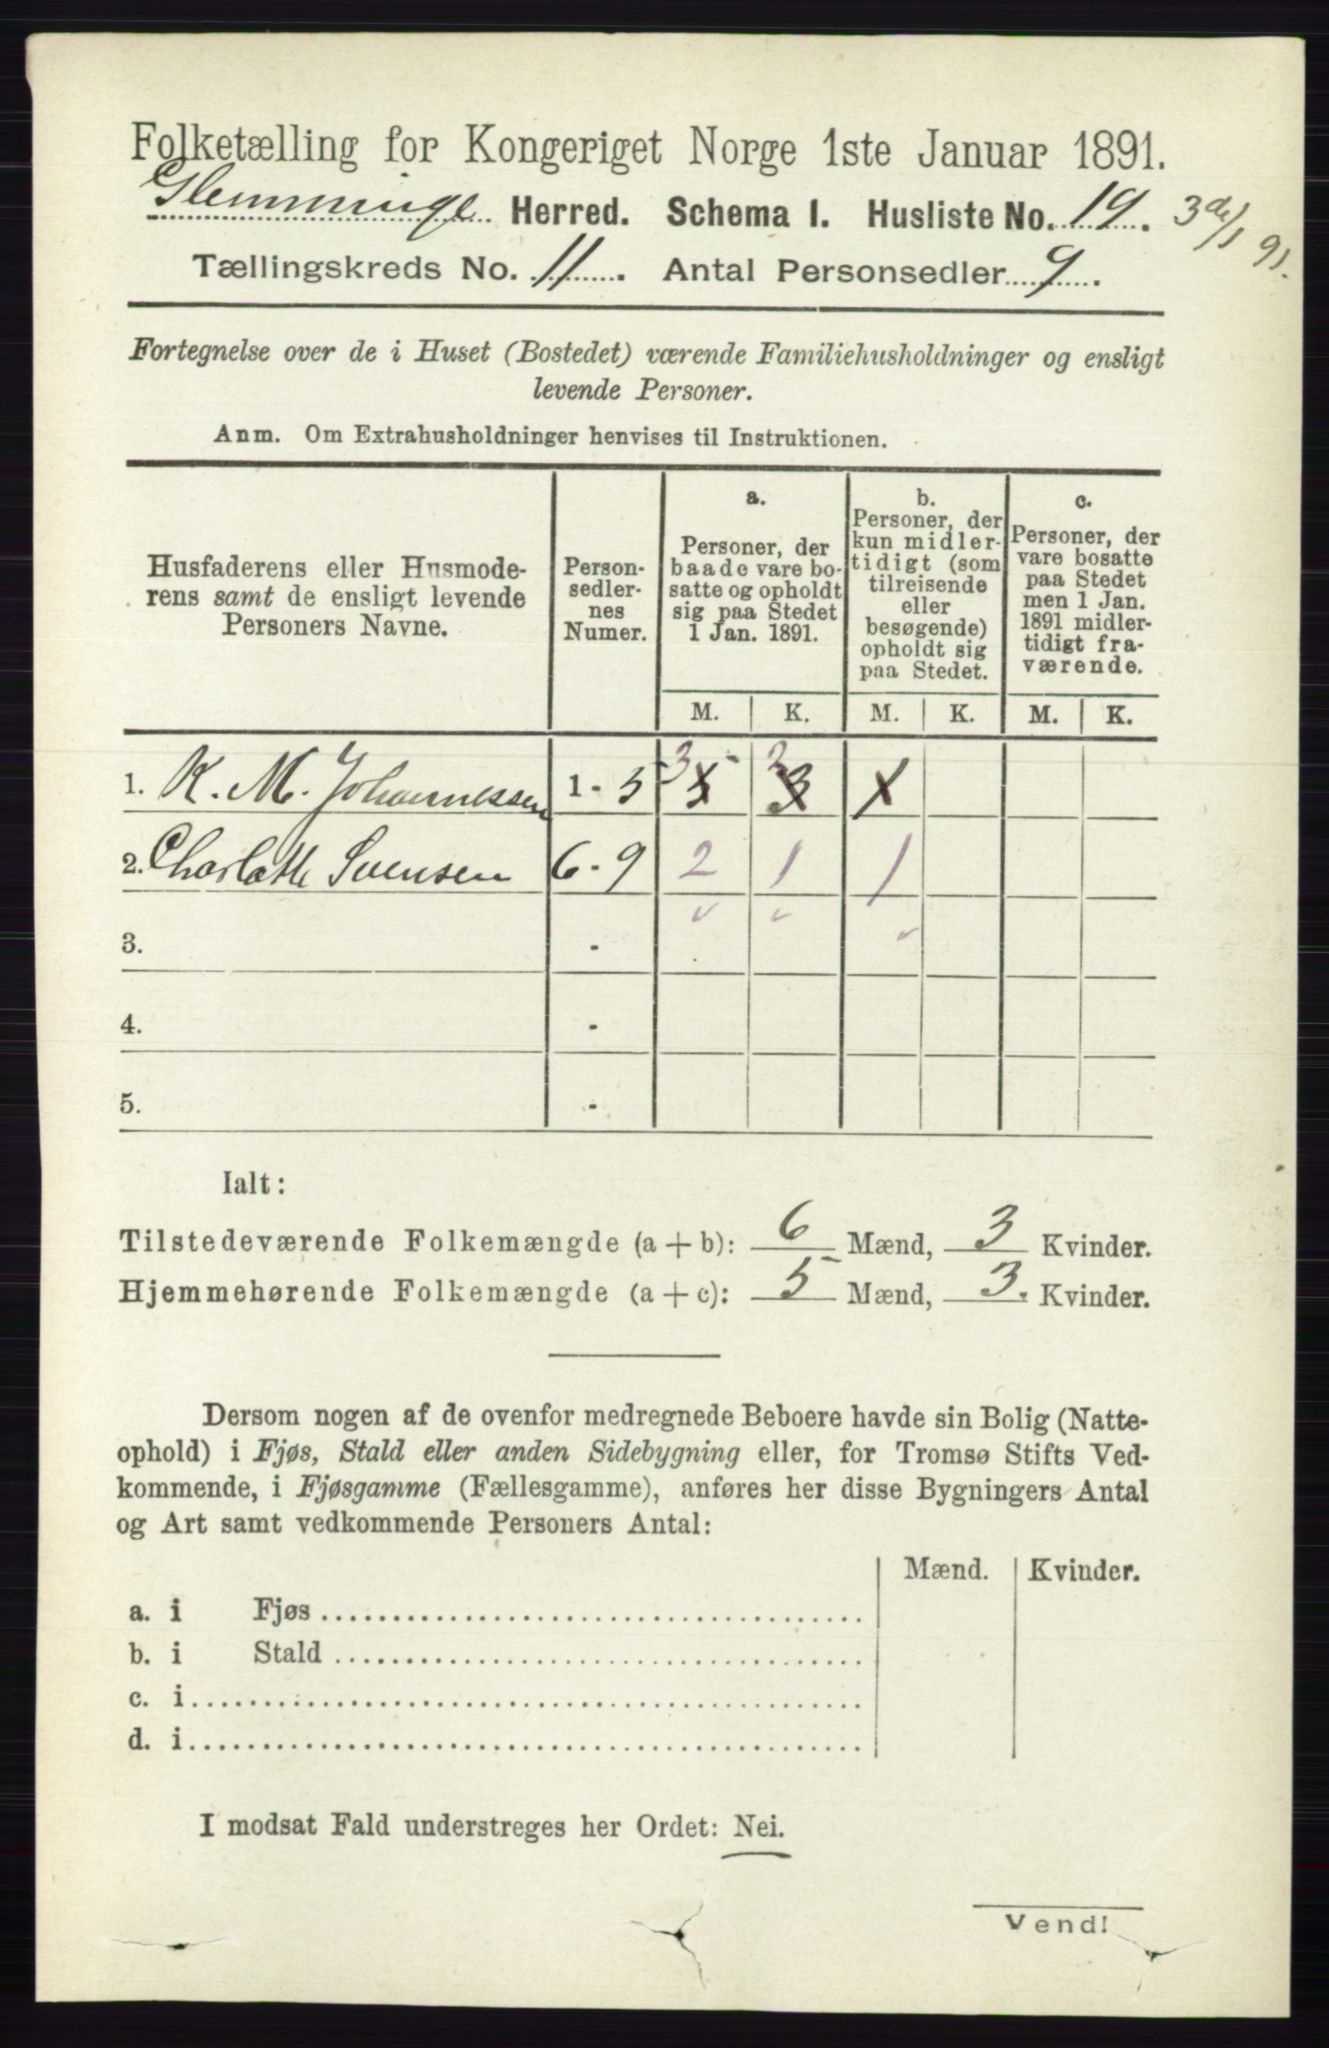 Folketælling for Kongeriget Norge 1ste Januar 1891.
Glemminge Herred. Schema I. Husliste No. 19. 3de/1 91.
Tællingskreds No. 11. Antal Personsedler 9.
Fortegnelse over de i Huset (Bostedet) værende Familiehusholdninger og ensligt
levende Personer.
Anm. Om Extrahusholdninger henvises til Instruktionen.
Husfaderens eller Husmode-
rens samt de ensligt levende
Personers Navne.
Person-
sedler-
nes
Numer.
a.
Personer, der
baade vare bo-
satte og opholdt
sig paa Stedet
1 Jan. 1891.
b.
Personer, der
kun midler-
tidigt (som
tilreisende
eller
besøgende)
opholdt sig
paa Stedet.
c.
Personer, der
vare bosatte
paa Stedet
men 1 Jan.
1891 midler-
tidigt fra-
værende.
M. K. M. K. M. K.
1. K. M. Johannessen 1 - 5 3 5 2 3 1
2. Charlotte Svensen 6 - 9 2 1 1
3. -
4. -
5. -
Ialt:
Tilstedeværende Folkemængde (a + b): 6 Mænd, 3 Kvinder.
Hjemmehørende Folkemængde (a + c): 5 Mænd, 3. Kvinder.
Dersom nogen af de ovenfor medregnede Beboere havde sin Bolig (Natte-
ophold) i Fjøs, Stald eller anden Sidebygning eller, for Tromsø Stifts Ved-
kommende, i Fjøsgamme (Fællesgamme), anføres her disse Bygningers Antal
og Art samt vedkommende Personers Antal:
Mænd. Kvinder.
a. i Fjøs
b. i Stald
c. i
d. i
I modsat Fald understreges her Ordet: Nei.
Vend!